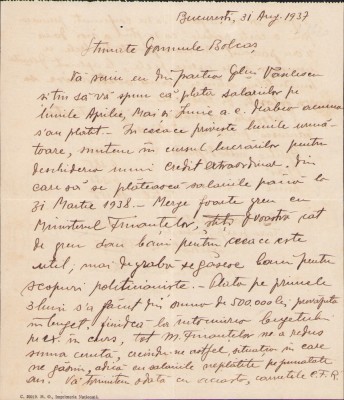 București, 31 Aug. 1937
Stimate Domnule Bolcaș
Vă scriu eu din partea Glui Vasilescu
și țin să vă spun că plata salariilor pe
lunile Aprilie, Mai și Iunie a.c. deabia acuma
s'au plătit. În ceeace privește lunile urmă-
toare, suntem în cursul lucrărilor pentru
deschiderea unui credit extraordinar din
care să se plătească salariile până la
31 Martie 1938. – Merge foarte greu cu
Ministerul Finanțelor, știți Dvoastră cât
de greu dau bani pentru ceeace este
util; mai degrabă se găsesc bani pentru
scopuri politicianiste. – Plata pe primele
3 luni s'a făcut din suma de 500.000 lei, prevăzută
în buget, fiindcă la întocmirea bugetului
pe ex. în curs, tot M. Finanțelor ne-a redus
suma cerută, creindu-ne astfel situația în care
ne găsim, adică cu salariile neplătite pe jumătate
an. Vă trimitem odată cu aceasta, carnetele C.F.R.
Imprimeria Națională.